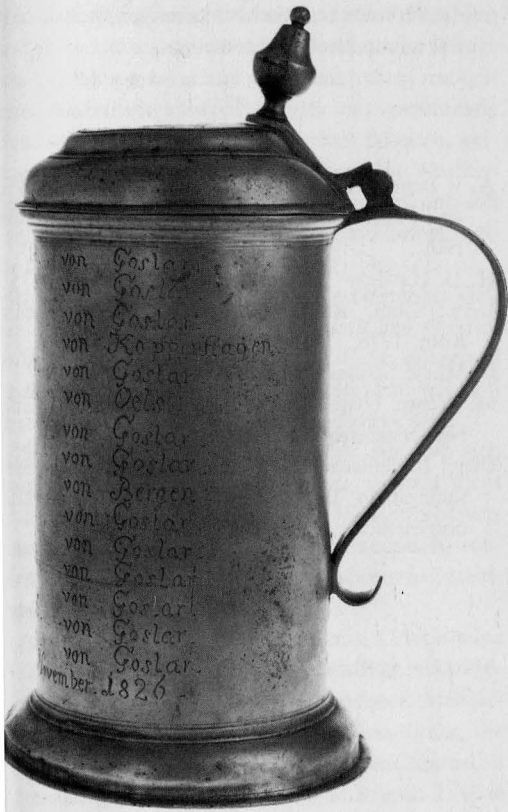 von Goslar.
von Goslar
von Goslar.
von Koppenhagen.
von Goslar
von Oels
von Goslar.
von Goslar.
von Bergen.
von Goslar
von Goslar.
von Goslar
von Goslar.
von Goslar
von Goslar.
November. 1826